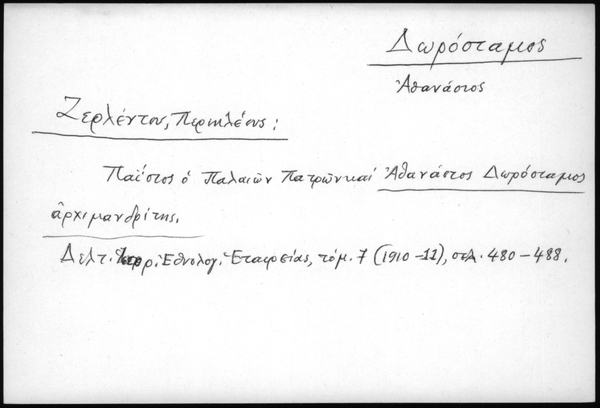 Δωρόσταμος
Ἀθανάσιος
Ζερλέντου, Περικλέους:
Παΐσιος ὁ Παλαιῶν Πατρῶν καὶ Ἀθανάσιος Δωρόσταμος
ἀρχιμανδρίτης.
Δελτ. Ἱστορ. Ἐθνολογ. Ἑταιρείας, τόμ. 7 (1910-11), σελ. 480-488.